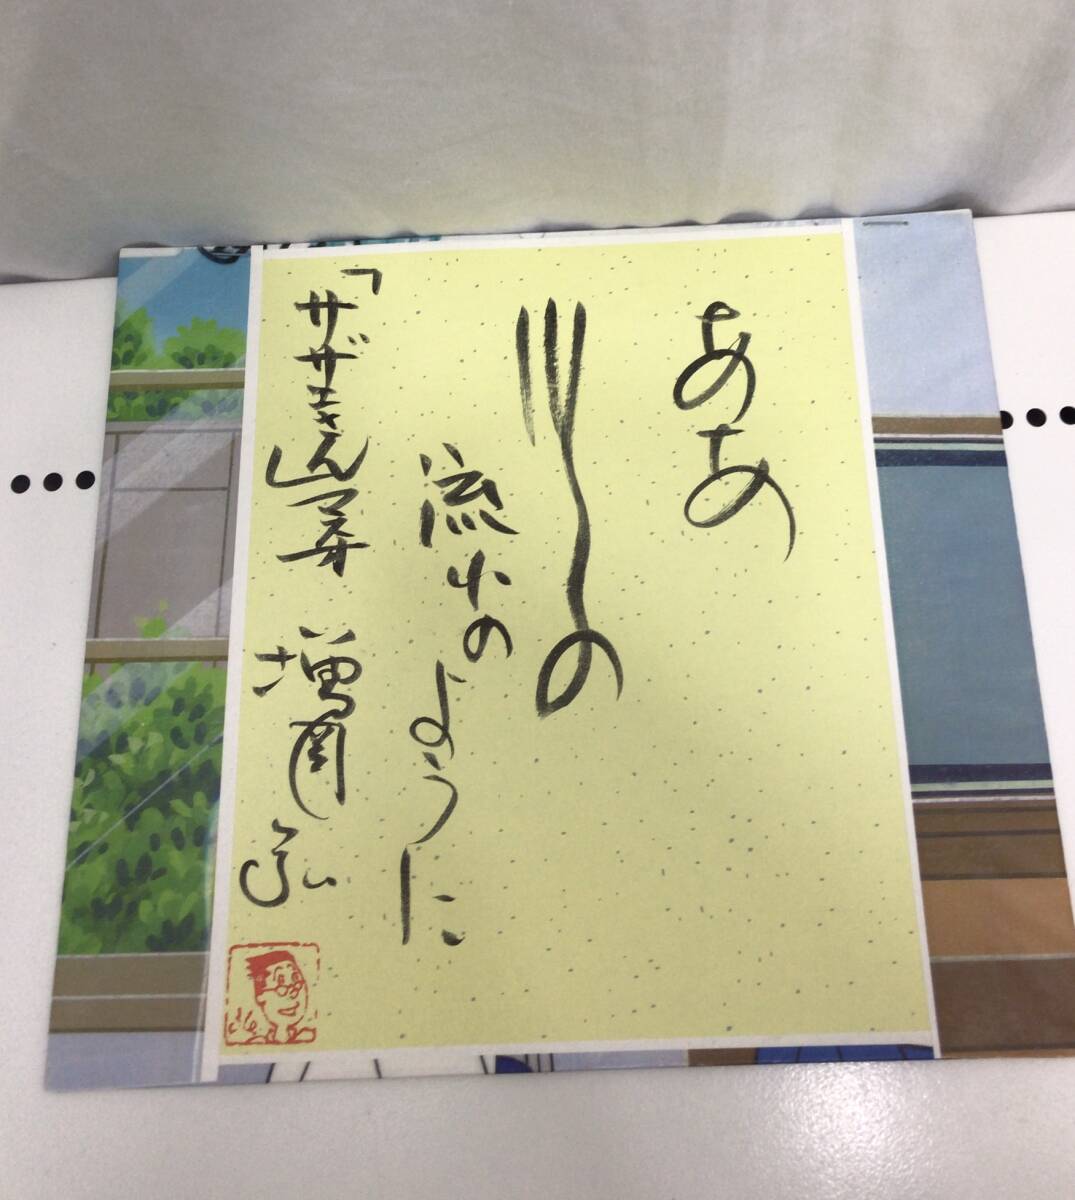 ああ
川の
流れのように
「サザエさん」マスオ
増岡弘